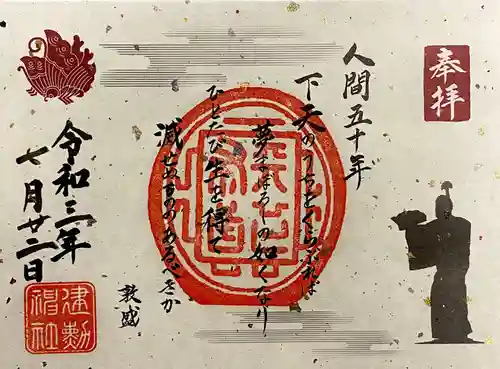 奉拝
人間五十年
下天のうちをくらぶれば
夢まぼろしの如くなり
ひとたび生を得て
滅せぬもののあるべきか
敦盛
令和三年
七月廿二日
建勲
神社